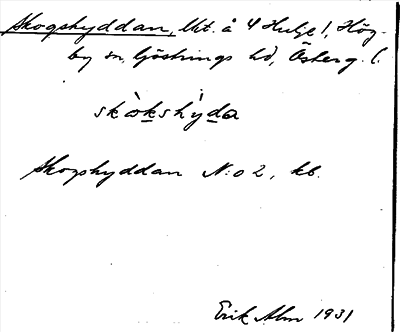 Skogshyddan, lht. å 4 Hulje 1, Hög-
by sn, Göstrings hd, Österg. l.
skòkshỳda
Skogshyddan N:o 2, kb.
Erik Alm 1931